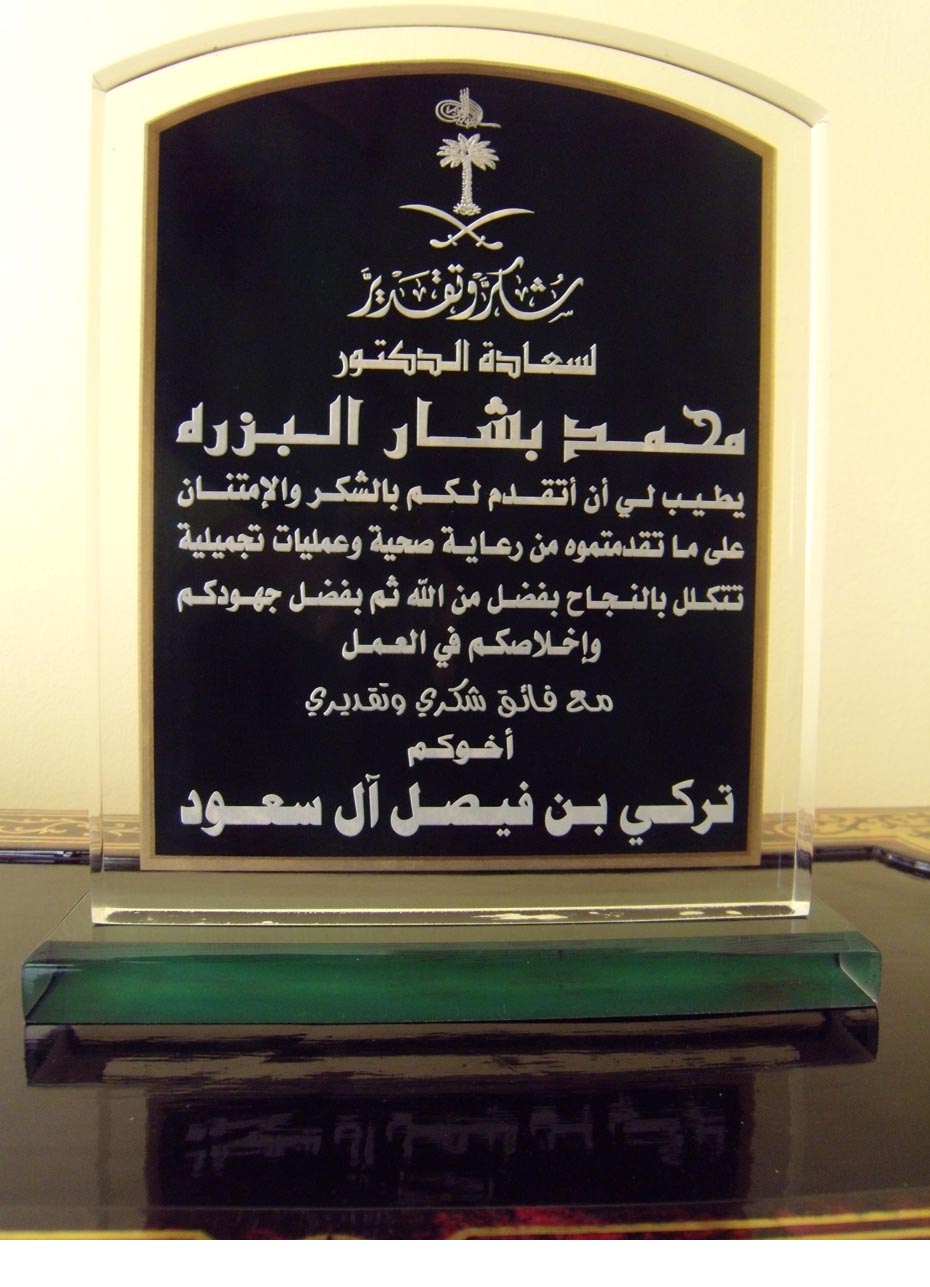 شكر وتقدير
لسعادة الدكتور
محمد بشار البزره
يطيب لي أن أتقدم لكم بالشكر والإمتنان
على ما تقدمتموه من رعاية صحية وعمليات تجميلية
تتكلل بالنجاح بفضل من الله ثم بفضل جهودكم
وإخلاصكم في العمل
مع فائق شكري وتقديري
أخوكم
تركي بن فيصل آل سعود